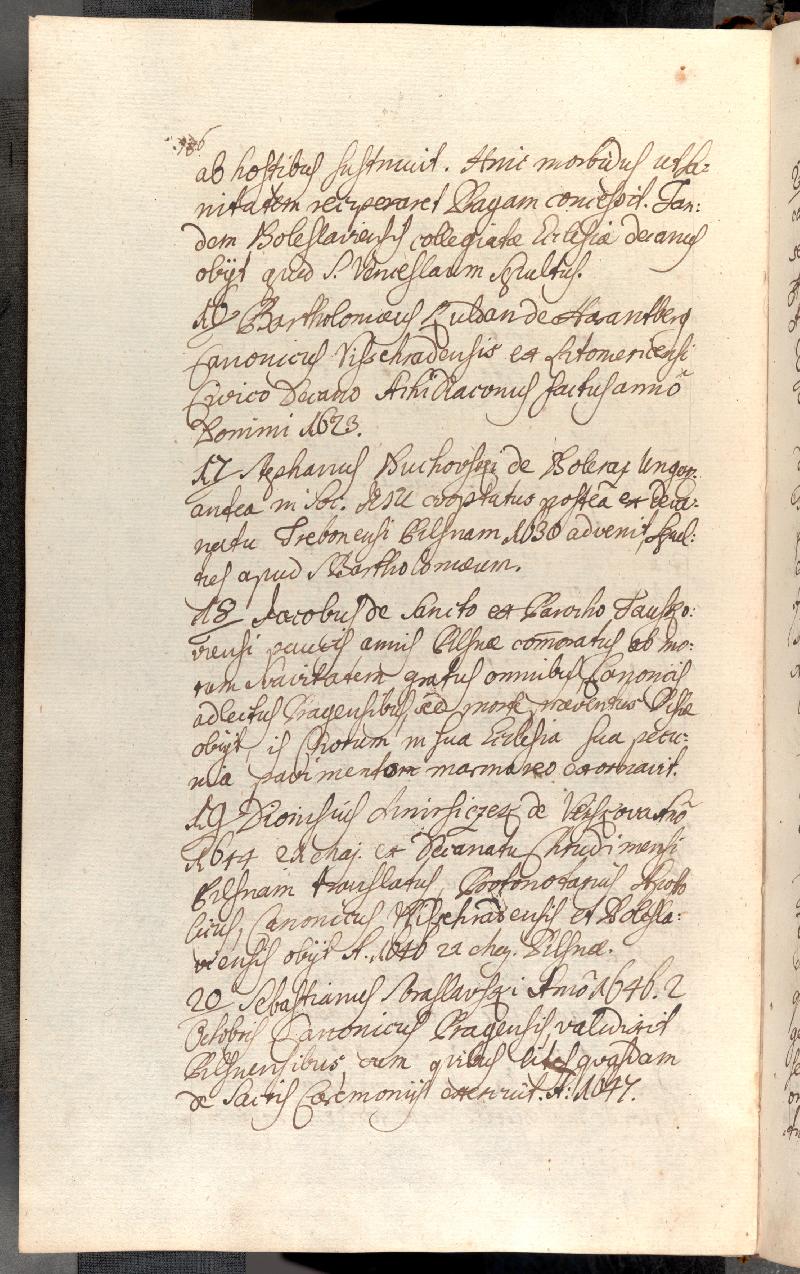 186
ab hostibus sustinuit. Hinc morbidus ut sa-
nitatem reciperaret Pragam concessit. Tan:
dem Boleslaviensis collegiatæ Ecclesiæ decanus
obijt apud S. Venceslaum sepultus.
16 Bartholomæus de Harantberg
Canonicus Vissehradensis ex Litomericensi
Civico Decano Archidiaconus factus anno
Domini 1623.
17 Stephanus Buchovski de Ungar.
antea in Soc. JESU cooptatus postea ex deca-
natu Trebonensi Pilsnam 1630 advenit, sepul:
apud S. Bartholomæum.
18 Jacobus de Sancto ex Parocho Tausko:
viensi paucis annis Pilsnæ comoratus ob mo:
rum suavitatem gratus omnibus Canonicis
adlectus Pragensibus, sed morte præventus Pilsnæ
obijt, is Chorum in sua Ecclesia sua pecu:
nia pavimento marmoreo exornavit.
19 Dionisius de Anno
1644 22 maj. ex Decanatu Chrudimensi
Pilsnam translatus, Protonotarius Aposto
licus, Canonicus Vissehradensis et Bolesla:
viensis obijt A. 1646 22 Pilsnæ.
20 Sebastianus Anno 1646. 2
Octobris Canonicus Pragensis valedixit
Pilsnensibus, cum quibus lites quasdam
de Sacris Cæremonijs exercuit. A: 1647.